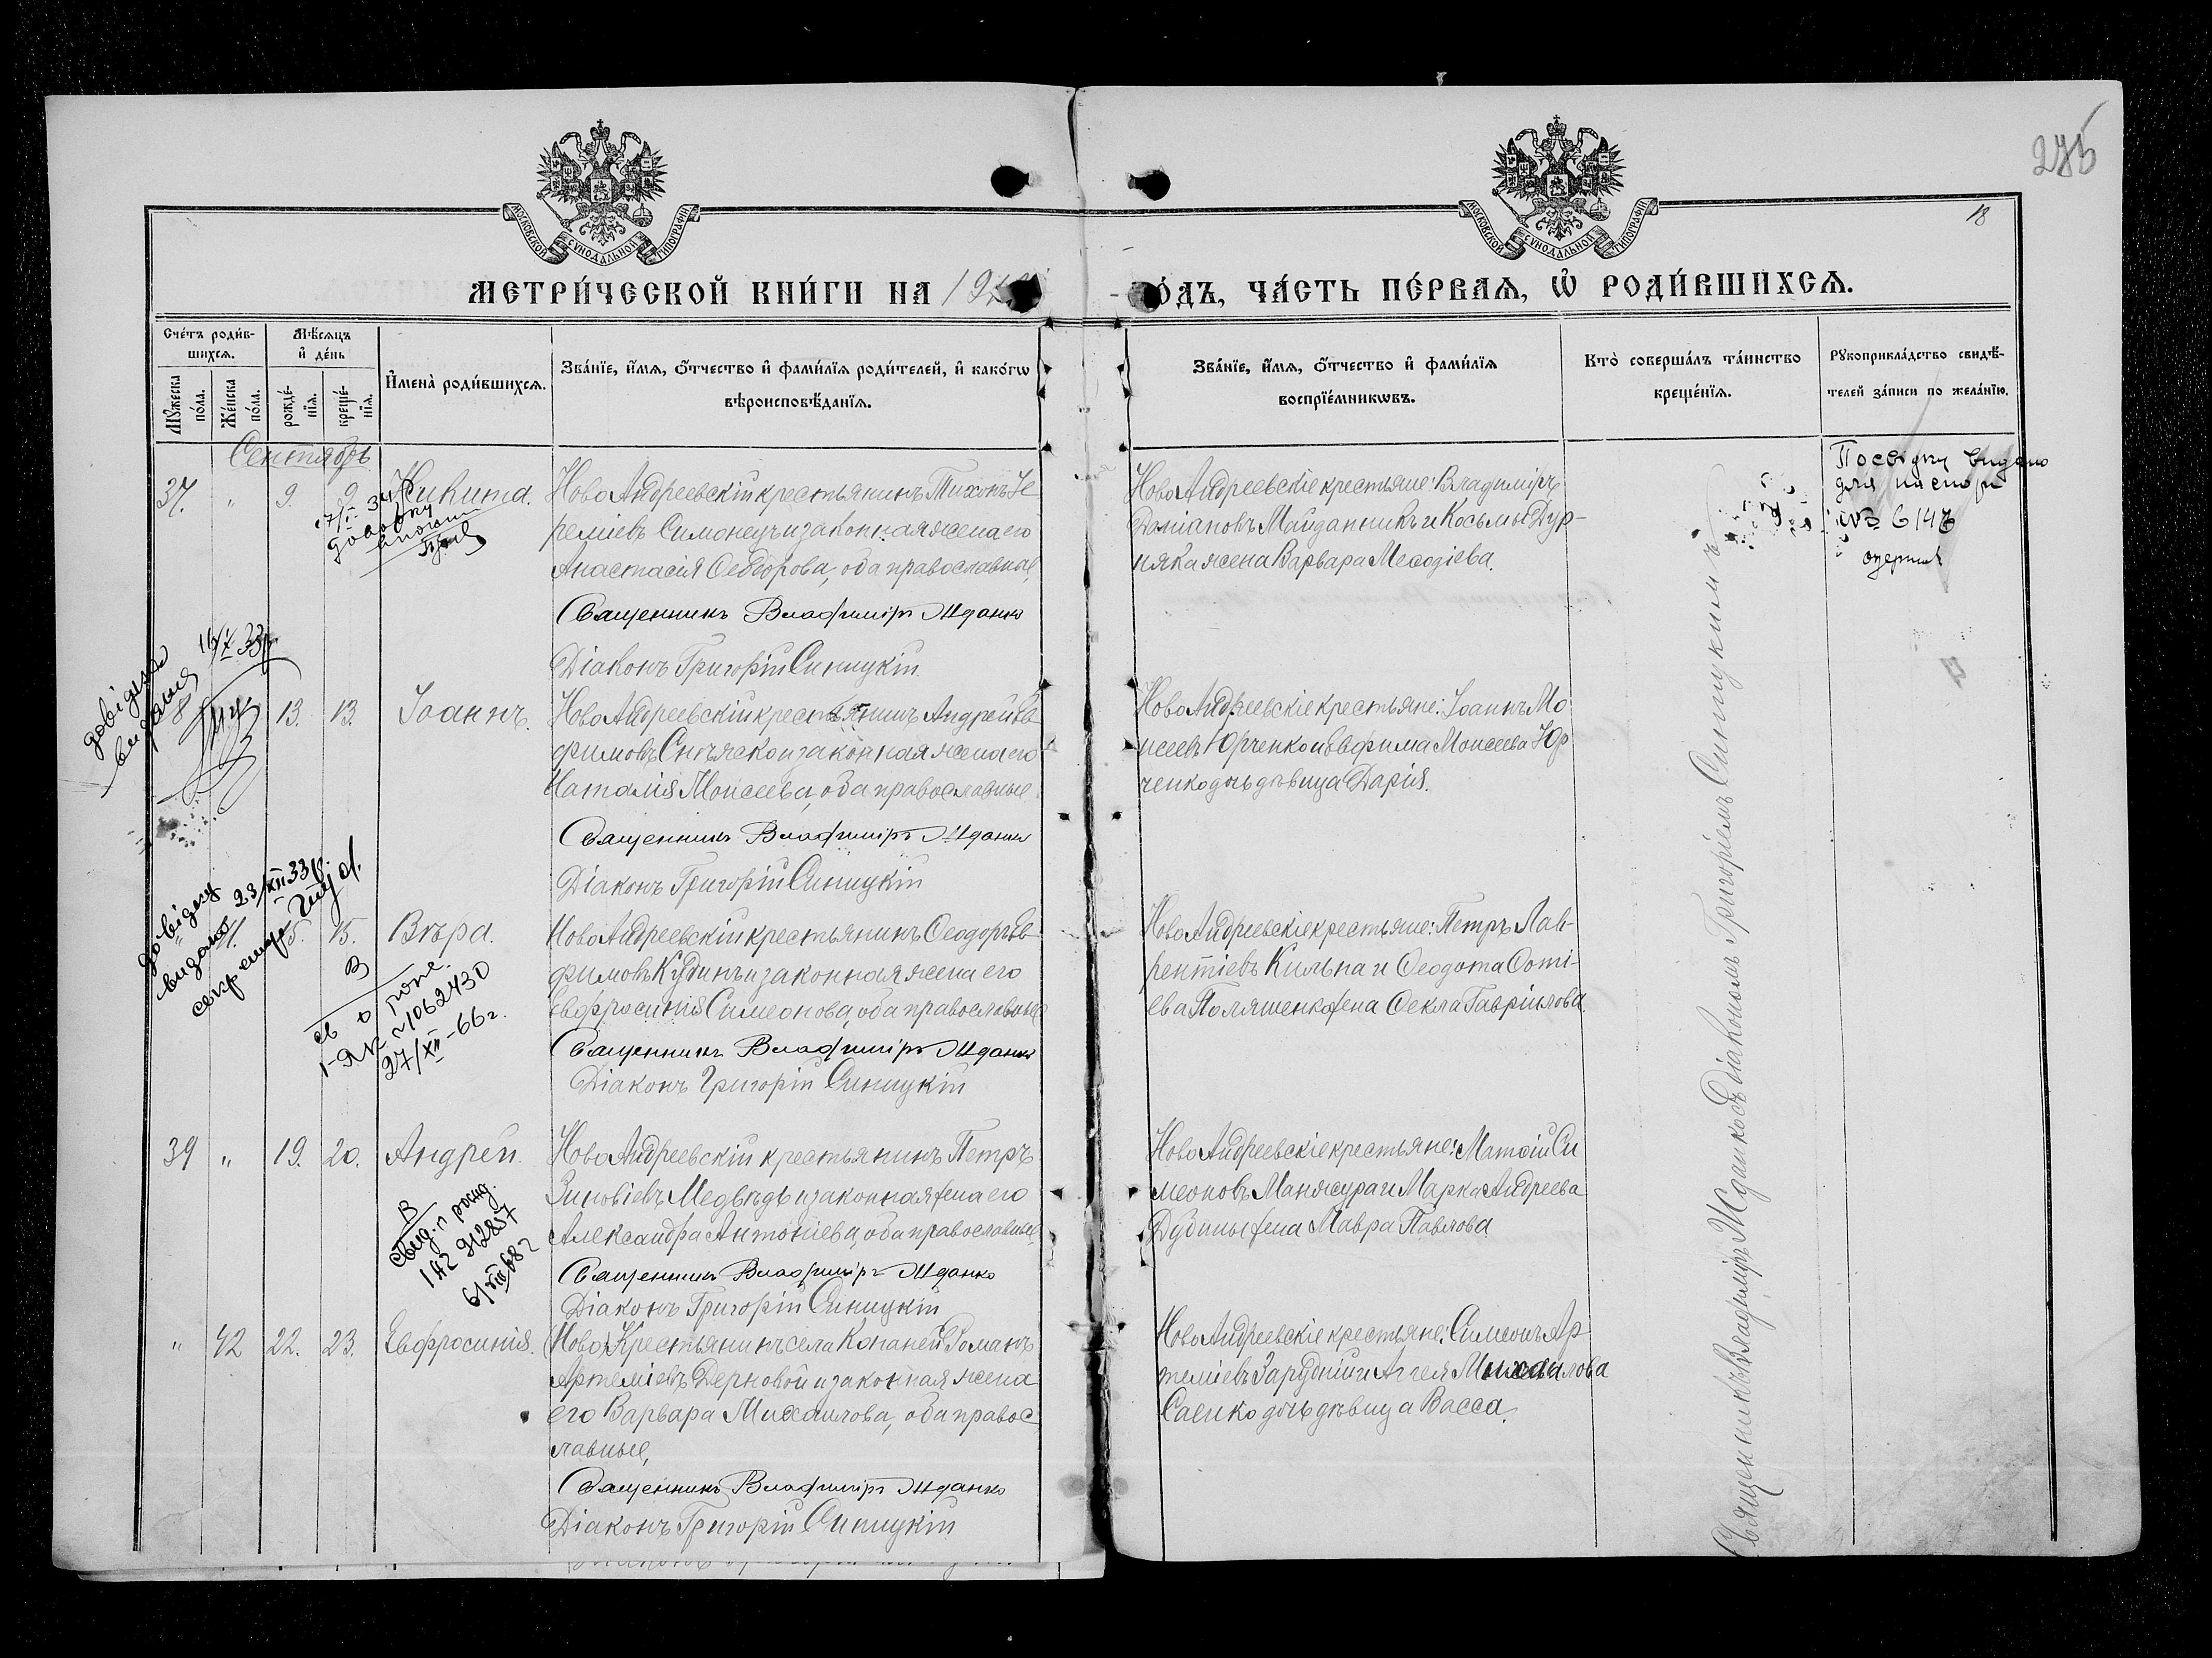 275
18
МОСКОВСКОЙ СУНОДАЛЬНОЙ ТИПОГРАФІИ
МОСКОВСКОЙ СУНОДАЛЬНОЙ ТИПОГРАФІИ
МЕТРИ́ЧЕСКОЙ КНИ́ГИ НА 19
О́ДЪ, ЧА́СТЬ ПЕ́РВАЯ, Ѡ РОДИ́ВШИХСЯ.
Сче́тъ роди́в-
шихся.
Мѣ́сяцъ
и҆ де́нь
Мꙋ́жеска
по́ла.
Же́нска
по́ла.
рожде́-
нїя.
креще́-
нїя.
И҆мена̀ роди́вшихся.
Зва́нїе, и҆́мя, ѻ҆́тчество и҆ фами́лїя роди́телей, и҆ како́гѡ
вѣроисповѣ́данїя.
Зва́нїе, и҆́мя, ѻ҆́тчество и҆ фами́лїя
воспрїе́мникѡвъ.
Кто̀ соверша́лъ та́инство
креще́нїя.
Рꙋкоприкла́дство свидѣ́-
телей за́писи по жела́нїю.
Сентябрь
37. " 9. 9. Никита.
НовоАндреевскій крестьянинъ Тихонъ Іе
реміевъ Симонецъ и законная жена его
Анастасія Ѳеодорова, оба православные,
Священникъ Владиміръ Жданко
Діаконъ Григорій Синицкій
НовоАндреевскіе крестьяне: Владиміръ
Даміановъ Майданникъ и Косьмы Дур-
няка жена Варвара Меѳодіева.
Посвідку видано
для паспорт
№ 6147
довідка
видана
16/X 33р
13. 13. Іоаннъ.
НовоАндреевскій крестьянинъ Андрей Ев
фимовъ Снѣжко и законная жена его
Наталія Моисеева, оба православные
Священникъ Владиміръ Жданко
Діаконъ Григорій Синицкій
НовоАндреевскіе крестьяне: Іоаннъ Мо
исеевъ Юрченко и Евфима Моисеева Юр
ченко дочь дѣвица Дарія.
довідку
видано 23/XII 33р.
41. 15. 15. Вѣра.
НовоАндреевскій крестьянинъ Ѳеодоръ Ев
фимовъ Кудинъ и законная жена его
Евфросинія Симеонова, оба православные
Священникъ Владиміръ Жданко
Діаконъ Григорій Синицкій
НовоАндреевскіе крестьяне: Петръ Лав-
рентіевъ Кильпа и Ѳеодота Ѳоті-
ева Поляшенко жена Ѳекла Гавріилова.
В
св о рож.
1-ЯК №1062430
27/XII-66г.
39 " 19. 20. Андрей.
НовоАндреевскій крестьянинъ Петръ
Зиновіевъ Медвѣдь и законная жена его
Александра Антоніева, оба православные
Священникъ Владиміръ Жданко
Діаконъ Григорій Синицкій
НовоАндреевскіе крестьяне: Матѳій Си
меоновъ Манжура и Марка Андреева
Дубины жена Мавра Павлова
В
6/VIII 68г
" 42 22. 23. Евфросинія.
Ново Крестьянинъ села Копаней Романъ
Артеміевъ Дерновой и законная жена
его Варвара Михаилова, оба правос
лавные,
Священникъ Владиміръ Жданко
Діаконъ Григорій Синицкій
НовоАндреевскіе крестьяне: Симеонъ Ар
теміевъ Зарудній и Аггея Михаилова
Саенко дочь дѣвица Васса.
Священникъ Владиміръ Жданко съ Діакономъ Григоріемъ Синицкимъ